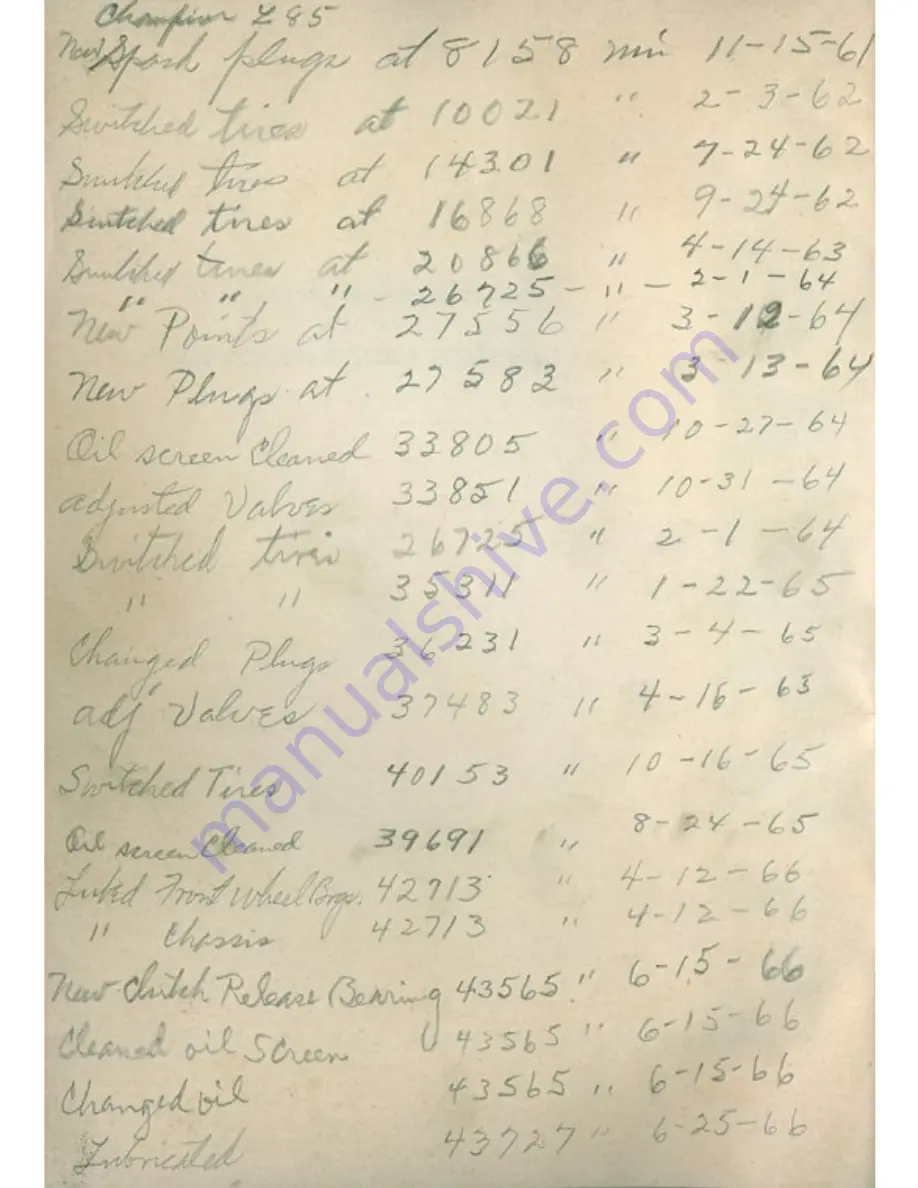 Champion L 85
New Spark plugs at 8158 mi 11-15-61
Switched tires at 10021 " 2-3-62
Switched tires at 14301 " 7-24-62
Switched tires at 16868 " 9-24-62
Switched tires at 20866 " 4-14-63
" " " - 26725 - " - 2-1-64
New Points at 27556 " 3-12-64
New Plugs at 27583 " 3-13-64
Oil screen Cleaned 33805 " 10-27-64
adjusted Valves 33851 " 10-31-64
Switched tires 26725 " 2-1-64
" " 35311 " 1-22-65
Changed Plugs 36231 " 3-4-65
adj Valves 37483 " 4-16-65
Switched Tires 40153 " 10-16-65
Oil screen Cleaned 39691 " 8-24-65
Lubed Front Wheel Brgs. 42713 " 4-12-66
" Chassis 42713 " 4-12-66
New Clutch Release Bearing 43565 " 6-15-66
Cleaned oil Screen 43565 " 6-15-66
Changed oil 43565 " 6-15-66
Lubricated 43727 " 6-25-66
manualshive.com